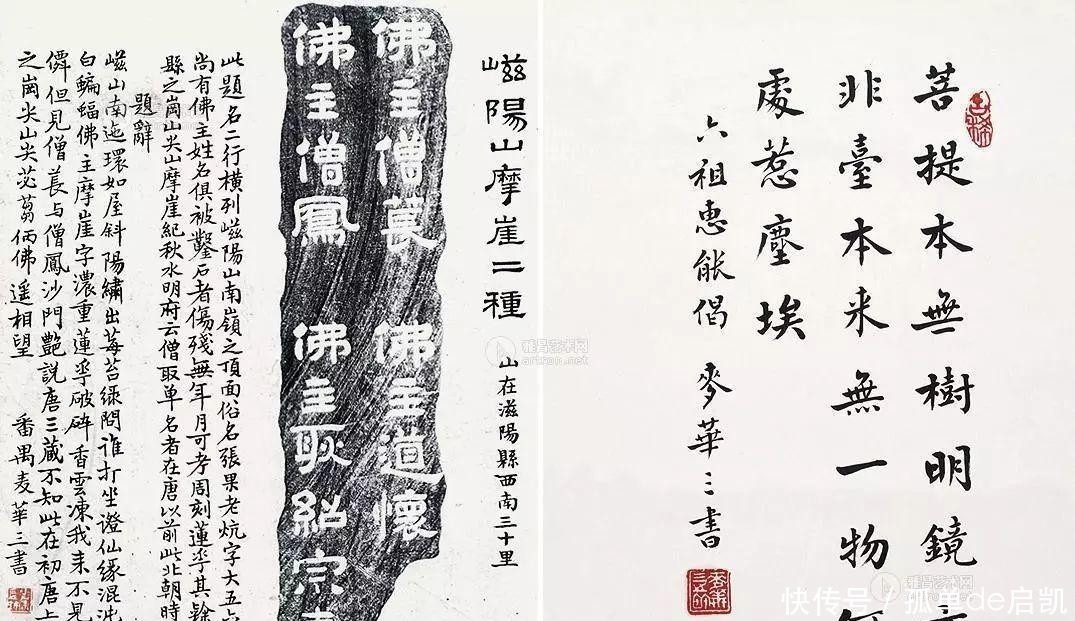 菩提本無樹明鏡
非臺本来無一物
處惹塵埃
六祖惠能偈 麥華三書
嵫陽山摩崖二種
山在滋陽縣西南三十里
佛主僧萇 佛主道懷
佛主僧鳳 佛主耿紹宗
此題名二行橫列嵫陽山南嶺之頂面俗名張果老炕字大五六
尚有佛主姓名俱被鑿石者傷殘無年月可考周刻蓮華其餘
縣之崗山尖山摩崖紀秋水明府云僧取单名者在唐以前此北朝時
題辭
嵫山南迤環如屋斜陽繡出莓苔綠問誰打坐證仙緣混沌
白蝙蝠佛主摩崖字濃重蓮華破碎香雲凍我来不見
儕但見僧萇與僧鳳沙門艷說唐三藏不知此在初唐上
之崗尖山尖苾蒭佛遥相望 番禺麦華三書
雅昌艺术网
artron.net
雅昌艺术网
快传号 / 孤单de启凯